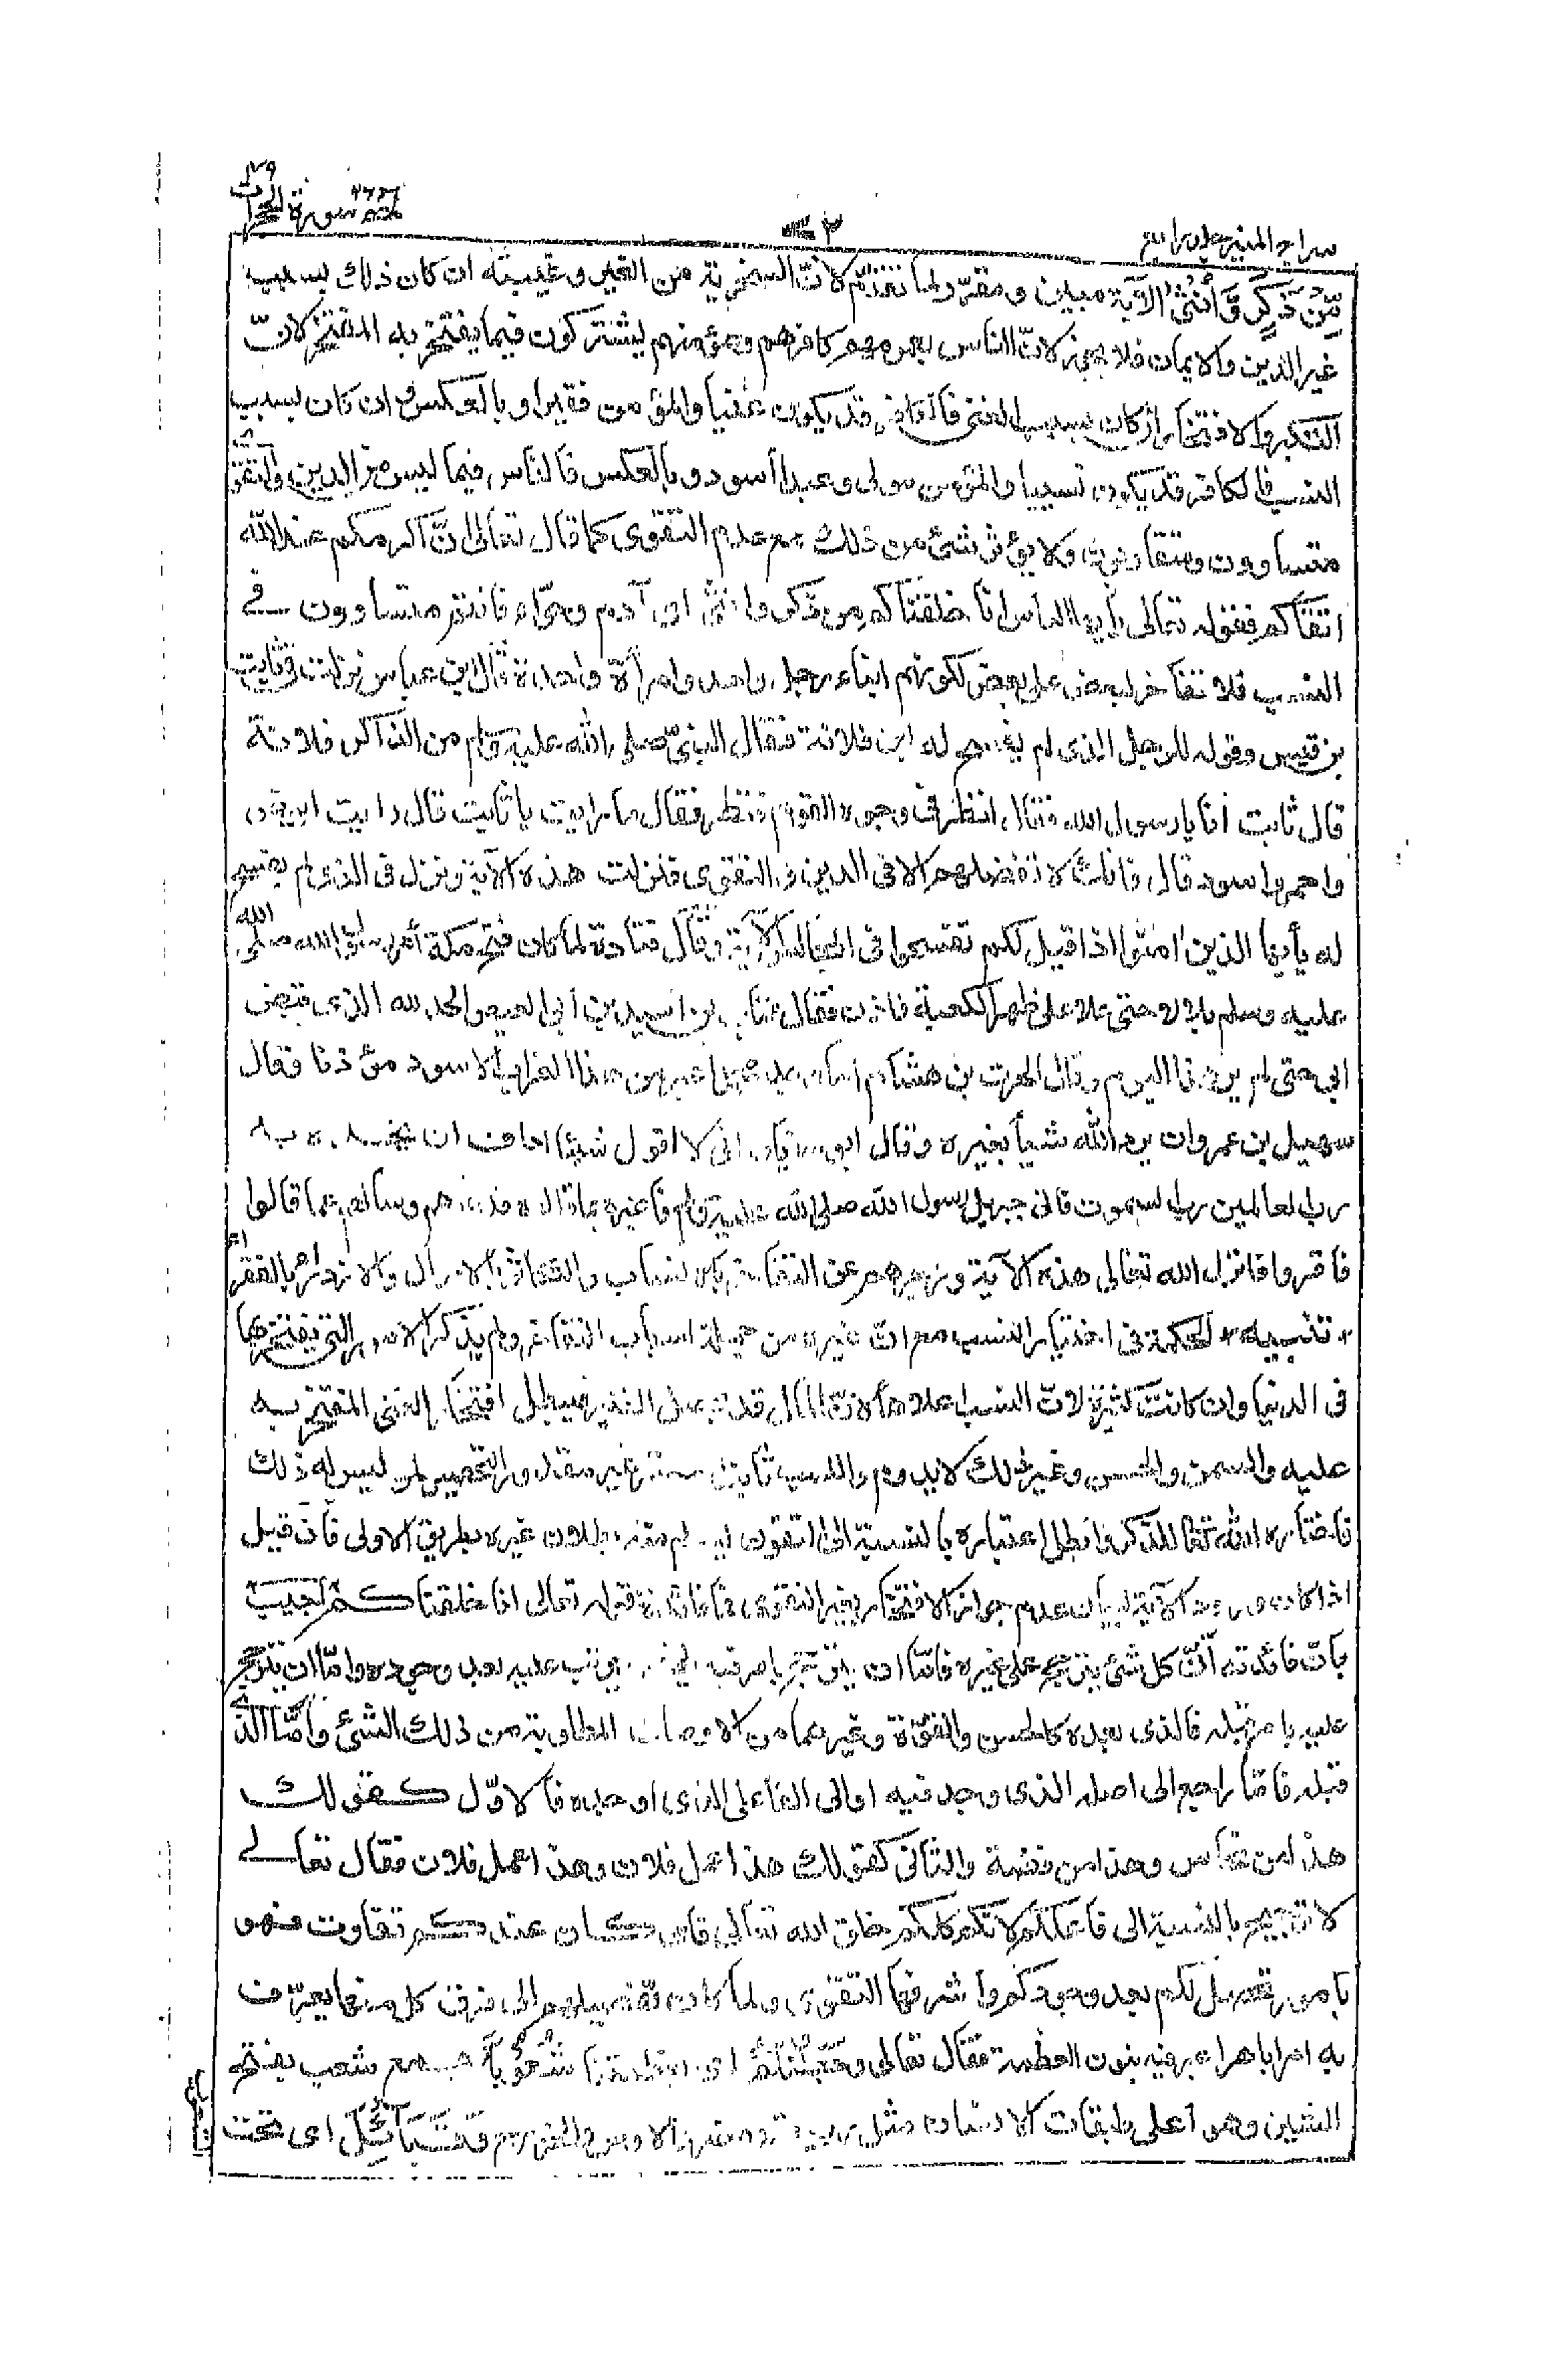 سراج المنير جلد رابع
٧٢
سورة الحجرات
مِّنْ ذَكَرٍ وَّأُنْثىٰ الآية مبين ومقرّر لما تقدّم لانّ السخرية من الغير وغيبته ان كان ذلك بسبب
غير الدين والايمان فلا يجوز لانّ الناس بعمومهم كافرهم ومؤمنهم يشتركون فيما يفتخر به المفتخر لانّ
التكبر والافتخار ان كان بسبب الغنى فالكافر قد يكون غنيا والمؤمن فقيرا وبالعكس وان كان بسبب
النسب فالكافر قد يكون نسيبا والمؤمن مولى وعبدا أسود وبالعكس فالناس فيما ليس من الدين والتقوى
متساوون ومتقاربون ولا يؤثر شئ من ذلك مع عدم التقوى كما قال تعالى انّ أكرمكم عند الله
اتقاكم فقوله تعالى يأيها الناس انا خلقناكم من ذكر وانثى اى آدم وحوّاء فانتم متساوون في
النسب فلا تفاخر لبعض على بعض لكونهم ابناء رجل واحد وامرأة واحدة قال ابن عباس نزلت فى ثابت
بن قيس وقوله للرجل الذى لم يفسح له ابن فلانة فقال النبيّ صلى الله عليه وسلم من الذاكر فلانة
قال ثابت أنا يارسول الله فقال انظر فى وجوه القوم فنظر فقال ما رايت يا ثابت قال رايت ابيض
واحمر واسود قال فانك لا تفضلهم الا فى الدين والتقوى فنزلت هذه الآية ونزل فى الذى لم يفسح
له يأيها الذين آمنوا اذا قيل لكم تفسحوا فى المجالس الآية وقال قتادة لما كان فتح مكة أمر رسول الله صلى الله
عليه وسلم بلالا حتى علا على ظهر الكعبة فاذن فقال عتاب بن اسيد بن أبى العيص الحمد لله الذى قبض
ابى حتى لم ير هذا اليوم وقال الحرث بن هشام أما وجد محمد غير هذا الغراب الاسود مؤذنا فقال
سهيل بن عمرو ان يرد الله شيأ يغيره وقال ابو سفيان انى لا اقول شيئا اخاف ان يخبر به
رب العالمين رب السموت فاتى جبريل رسول الله صلى الله عليه وسلم فاخبره بما قالوه فدعاهم وسألهم عما قالوا
فاقروا فانزل الله تعالى هذه الآية وزجرهم عن التفاخر بالانساب والتكاثر بالاموال والازدراء بالفقراء
* تنبيه * الحكمة فى اختيار النسب مع ان غيره من جملة اسباب التفاخر ولم يذكر الامور التي يفتخر بها
فى الدنيا وان كانت كثيرة لانّ النسب اعلاها لانّ المال قد يحصل للفقير فيبطل افتخار الغنى المفتخر به
عليه والسمن والحسن وغير ذلك لا يدوم والنسب ثابت مستمر غير مقدور التحصيل لمن ليس له ذلك
فاختاره الله تعالى للذكر وابطل اعتباره بالنسبة الى التقوى ليعلم منه بطلان غيره بطريق الاولى فان قيل
اذا كان ورود الآية لبيان عدم جواز الافتخار بغير التقوى فما فائدة قوله تعالى انا خلقناكم اجيب
بانّ فائدته أنّ كل شئ يترجح على غيره فامّا ان يترجح بامر فيه يترتب عليه بعد وجوده وامّا ان يترجح
عليه بامر قبله فالذى بعده كالحسن والقوّة وغيرهما من الاوصاف المطلوبة من ذلك الشئ وأمّا الذى
قبله فامّا راجع الى اصله الذى وجد فيه او الى الفاعل الذى اوجده فالاوّل كقولك
هذا من نحاس وهذا من فضة والثانى كقولك هذا عمل فلان وهذا عمل فلان فقال تعالى
لا ترجيح بالنسبة الى فاعلكم لانكم كلكم خلق الله تعالى فان كان عندكم تفاوت فهو
بامور تحصل لكم بعد وجودكم واشرفها التقوى ولما كان تفضيلهم الى فرق كل منها يعرّف
به امرا باهرا عبر فيه بنون العظمة فقال تعالى وَجَعَلْنَاكُمْ اى بعظمتنا شُعُوْبًا جمع شعب بفتح
الشين وهو أعلى طبقات الانساب مثل ربيعة ومضر والاوس والخزرج وَقَبَآئِلَ اى تحت